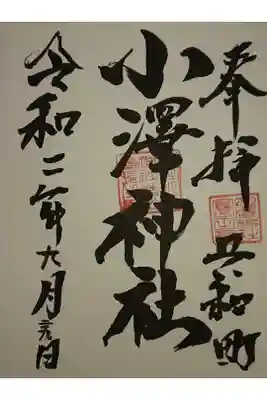 奉拝 共和町
小澤神社
令和二年九月日